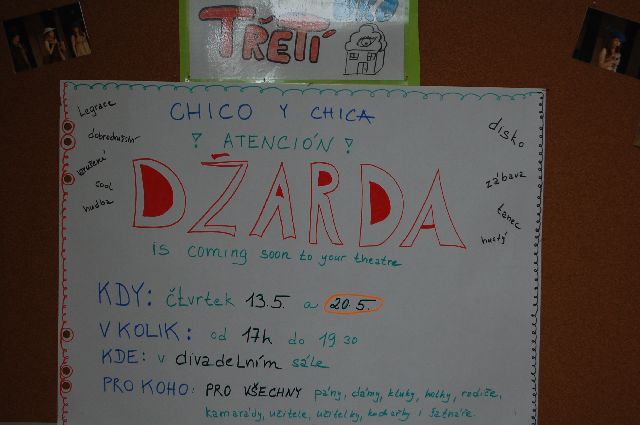 TŘETÍ
CHICO Y CHICA
! ATENCIÓN !
DŽARDA
is coming soon to your theatre
Legrace
dobrodružství
vzrušení
cool
hudba
disko
zábava
tanec
hustý
KDY: čtvrtek 13.5. a 20.5.
V KOLIK: od 17h do 19 30
KDE: v divadelním sále
PRO KOHO: PRO VŠECHNY pány, dámy, kluky, holky, rodiče,
kamarády, učitele, učitelky, kuchařky i šatnáře.